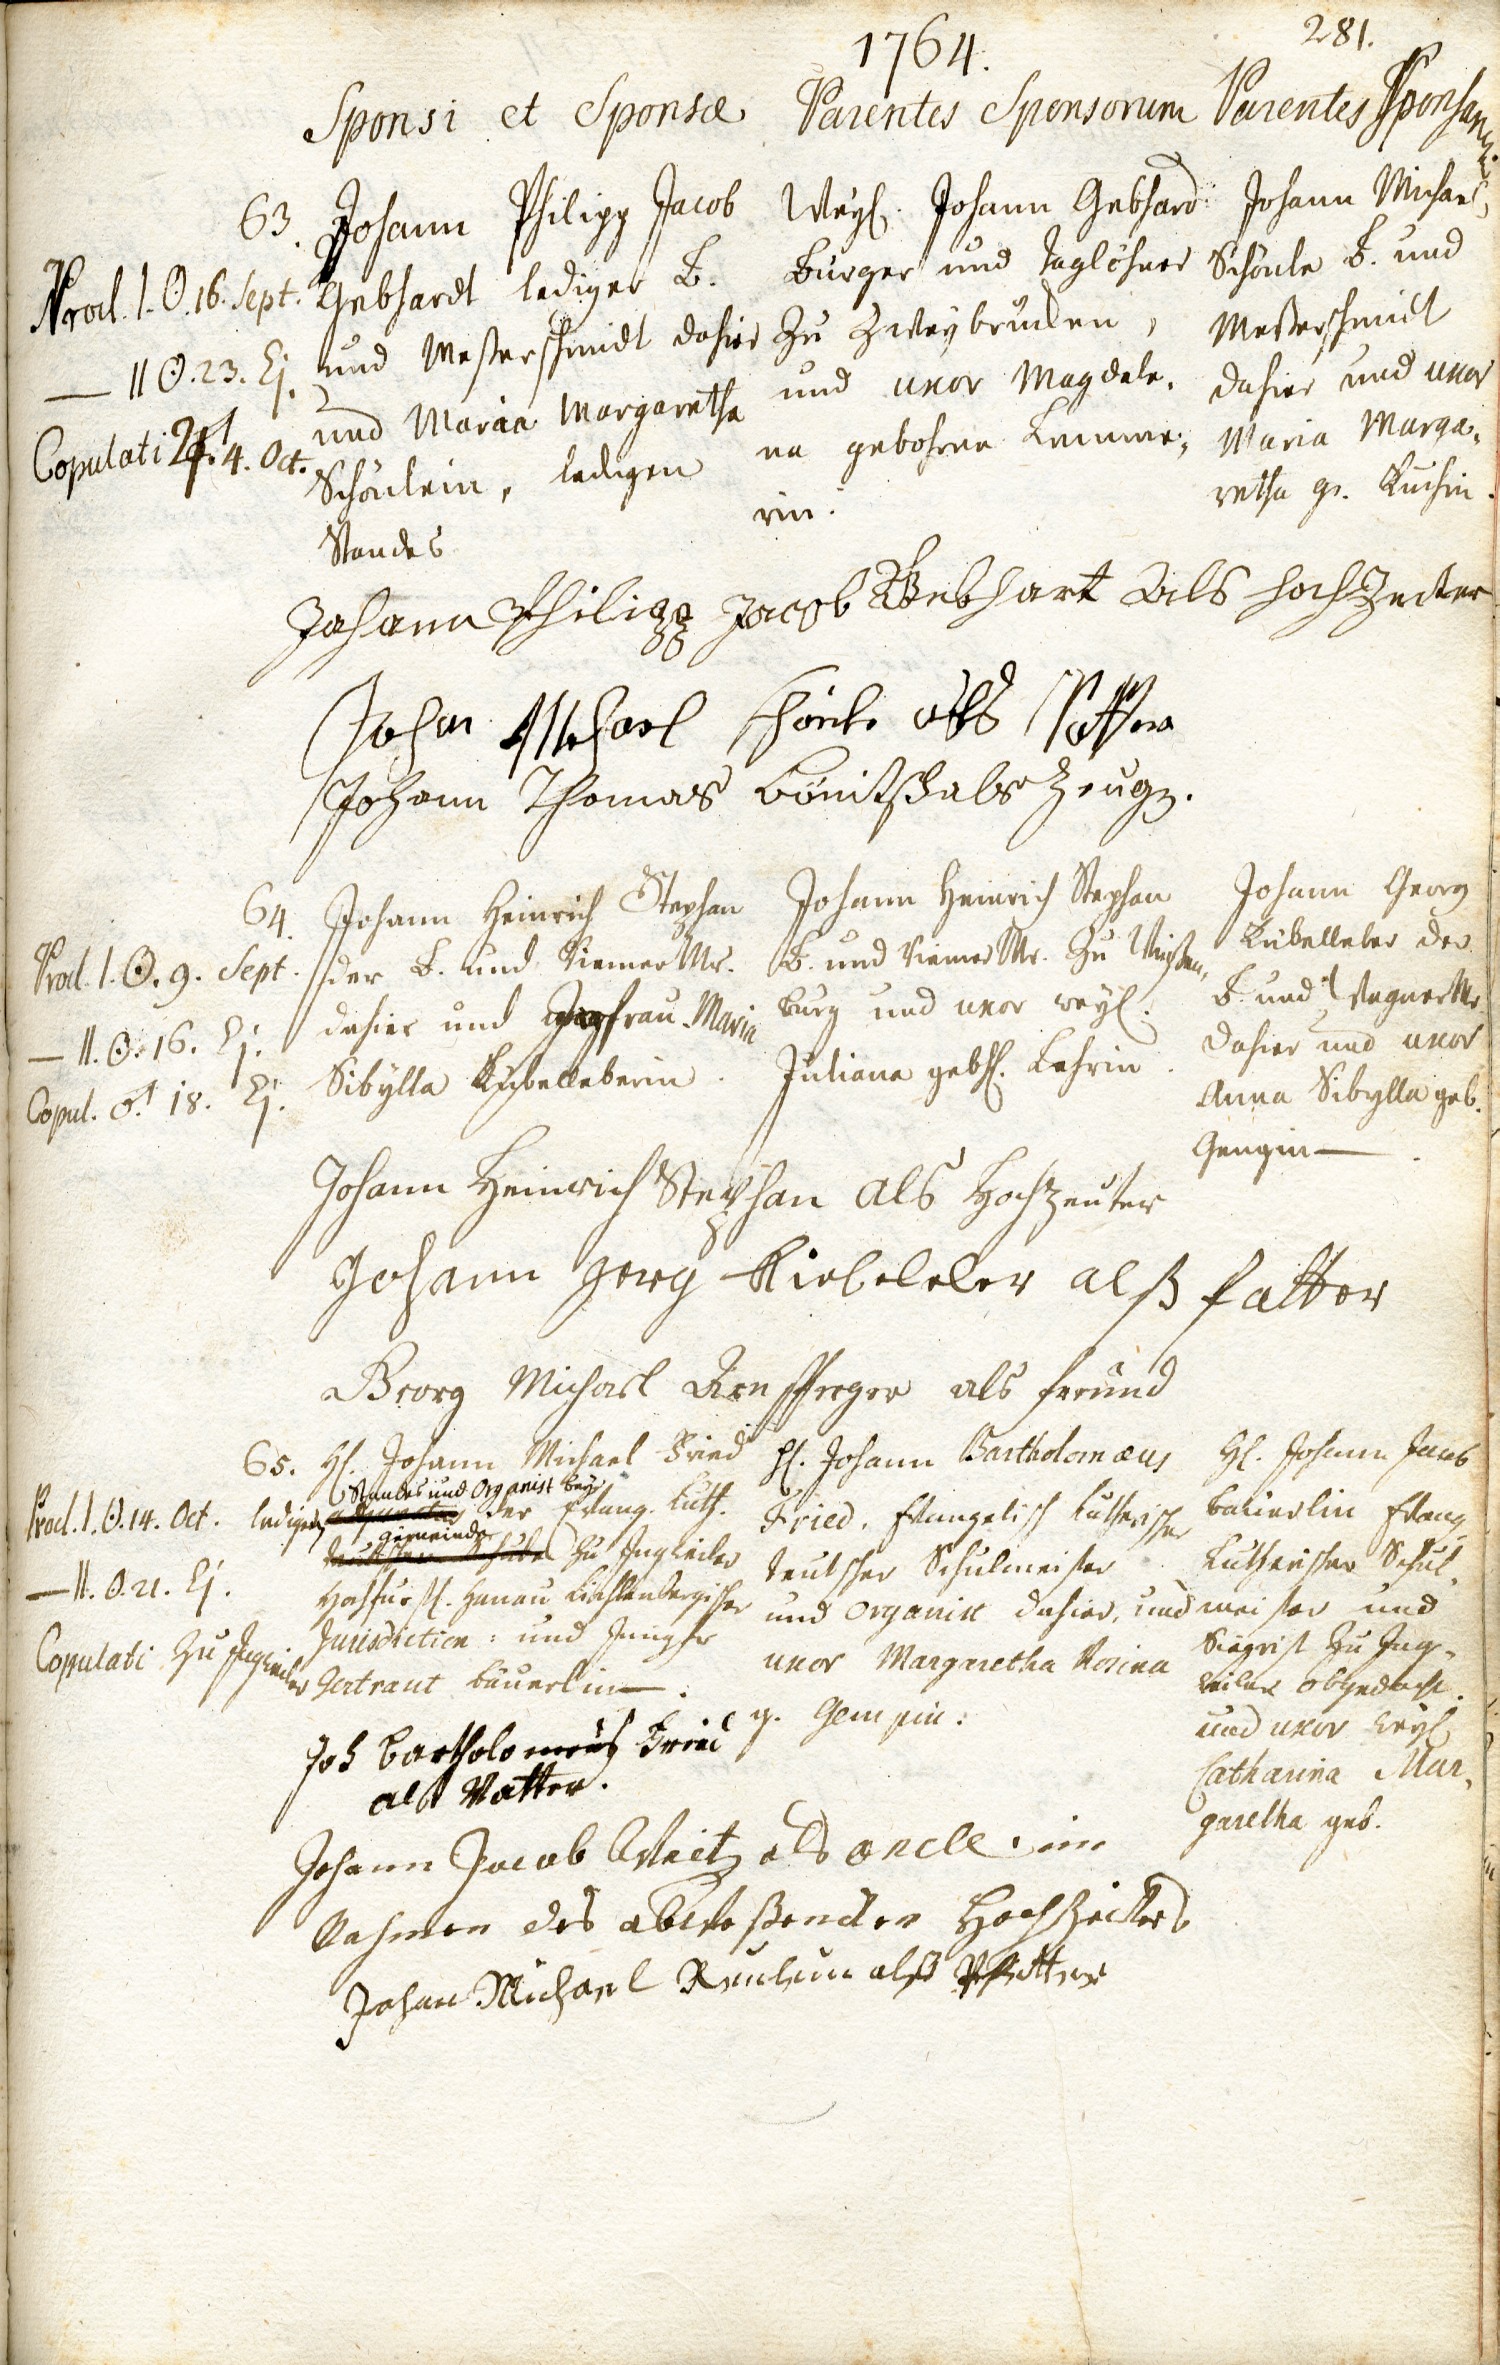 1764.
281.
Sponsi et Sponsæ
Parentes Sponsorum
Parentes Sponsarum
63.
Procl. I. ☉. 16. Sept.
— II ☉. 23. Ej.
Copulati ♃. 4. Oct.
Johann Philipp Jacob
Gebhardt lediger B.
und Messerschmidt dahier
und Maria Margaretha
Schönlein, ledigen
Standes
Weyl. Johann Gebhard
Burger und Taglöhner
zu Zweybrucken,
und uxor Magdale-
na gebohrne Lemme-
rin.
Johann Michael
Schönle B. und
Messerschmidt
dahier und uxor
Maria Marga-
retha g.
Johann Philipp Jacob Gebhart als hochzeiter
Johan Michael Schönle als Vatter
Johann Thomas als Zeuge.
64.
Procl. I. ☉. 9. Sept.
— II. ☉. 16. Ej.
Copul. ♂. 18. Ej.
Johann Heinrich Stephan
der B. und Riemer Mr.
dahier und Jgfrau Maria
Sibylla Kübelleberin.
Johann Heinrich Stephan
B. und Riemer Mr. zu Weissen-
burg und uxor weyl.
Juliana gebh. Lehrin.
Johann Georg
Kübelleber der
B. und Wagner Mr.
dahier und uxor
Anna Sibylla geb.
Gengin —.
Johann Heinrich Stephan als Hochzeuter
Johann georg Kiebeleler alß fatter
Georg Michael als freund
65.
Procl. I. ☉. 14. Oct.
— II. ☉. 21. Ej.
Copulati zu Ingweiler
Hl. Johann Michael Fried
ledigen Standes und Organist bey
der Evang. Luth.
gemeinde zu Ingweiler
Hochfürstl. Hanau Lichtenbergischer
Jurisdiction: und Jungfr
Gertraut bäuerlin —.
Hl. Johann Bartholomæus
Fried, Evangelisch Lutherischer
teutscher Schulmeister
und Organist dahier, und
uxor Margaretha Rosina
g.
Hl. Johann Jacob
bäuerlin Evang.
Lutherischer Schul-
meister und
Siegrist zu Ing-
weiler obgedacht.
und uxor weyl.
Catharina Mar-
garetha geb.
Joh bartholomeus Fried
alß Vatter.
Johann Jacob als oncle im
Nahmen des abweßenden Hochzeiters
Johan Michael alß Pfetter